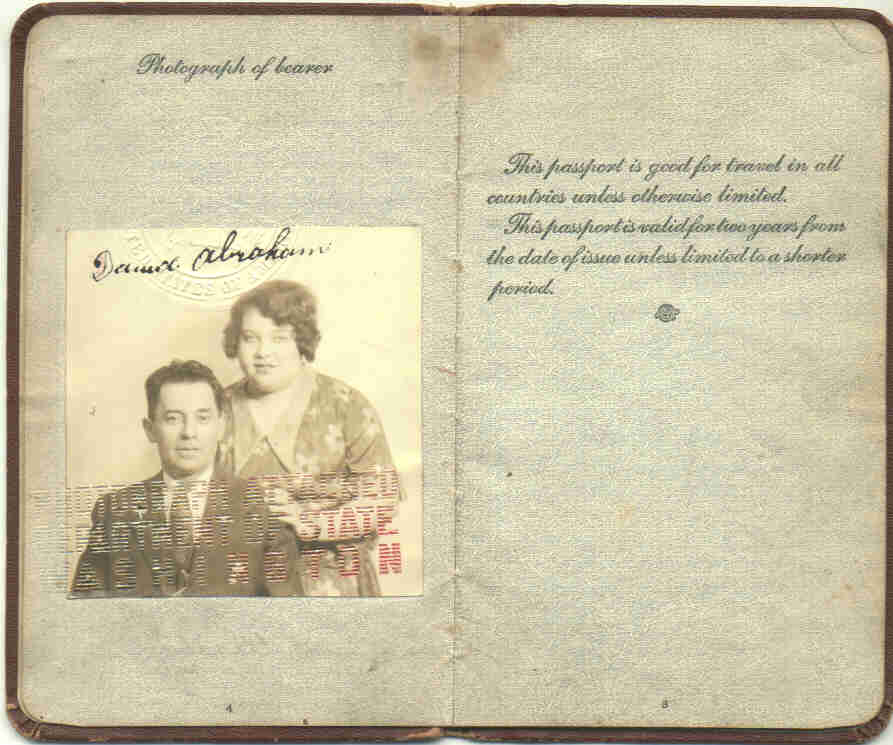 Photograph of bearer
Daniel Abraham
STATES OF
PHOTOGRAPH ATTACHED
DEPARTMENT OF STATE
WASHINGTON
4
This passport is good for travel in all
countries unless otherwise limited.
This passport is valid for two years from
the date of issue unless limited to a shorter
period.